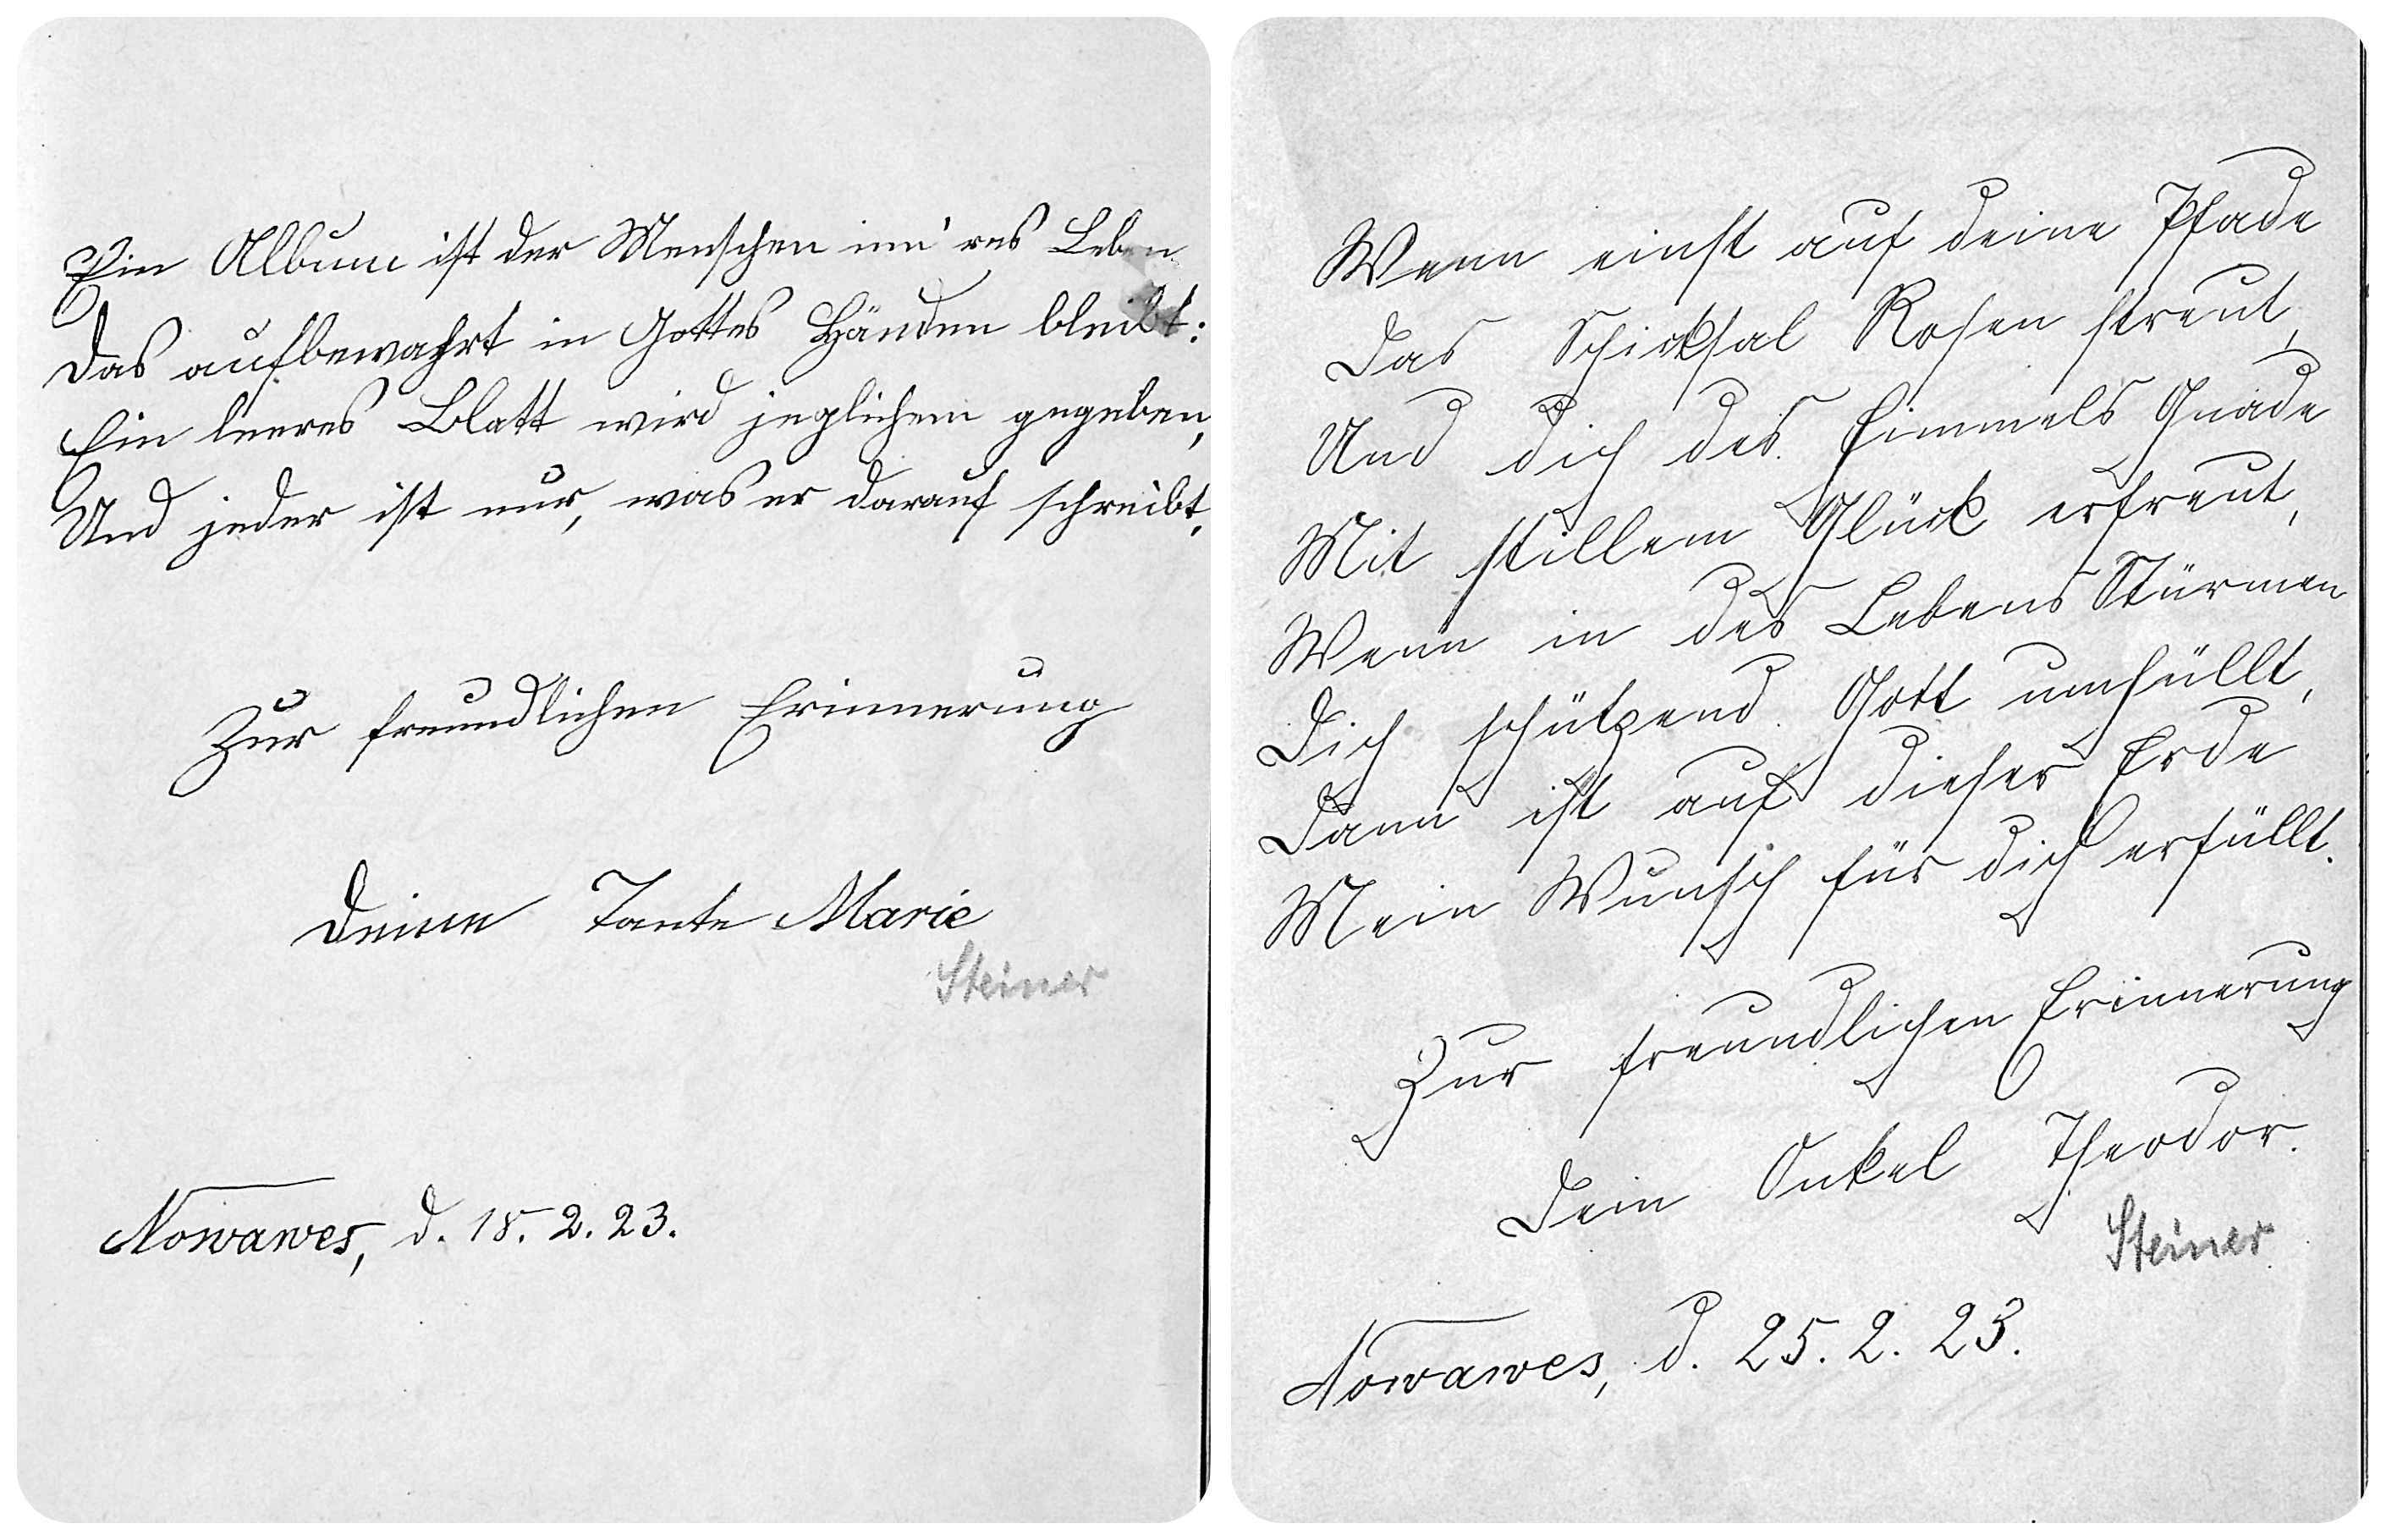 Ein Album ist der Menschen inn'res Leben
Das aufbewahrt in Gottes Händen bleibt:
Ein leeres Blatt wird jeglichem gegeben,
Und jeder ist nur, was er darauf schreibt.
Zur freundlichen Erinnerung
Deine Tante Marie
Steiner
Nowawes, d. 18. 2. 23.
Wenn einst auf deine Pfade
Das Schicksal Rosen streut,
Und dich des Himmels Gnade
Mit stillem Glück erfreut,
Wenn in des Lebens Stürmen
Dich schützend Gott umhüllt,
Dann ist auf dieser Erde
Mein Wunsch für dich erfüllt.
Zur freundlichen Erinnerung
Dein Onkel Theodor.
Steiner
Nowawes, d. 25. 2. 23.